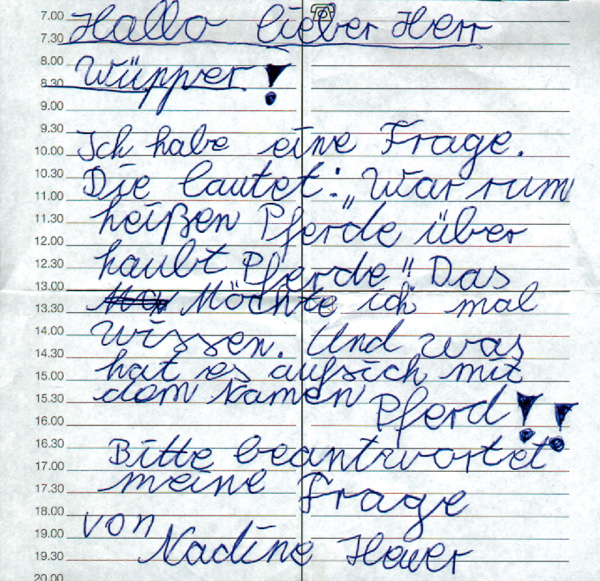 7.00 Hallo lieber Herr
7.30
8.00 Wüpper!
8.30
9.00
9.30 Ich habe eine Frage.
10.00
10.30 Die lautet: „War rum
11.00
11.30 heißen Pferde über
12.00
12.30 haubt Pferde" Das
13.00
13.30 Möchte ich mal
14.00 wissen. Und was
14.30
15.00 hat es aufsich mit
15.30 dem Namen Pferd!!
16.00
16.30 Bitte beantwortet
17.00
17.30 meine Frage
18.00
18.30 von
19.00
19.30 Nadine
20.00